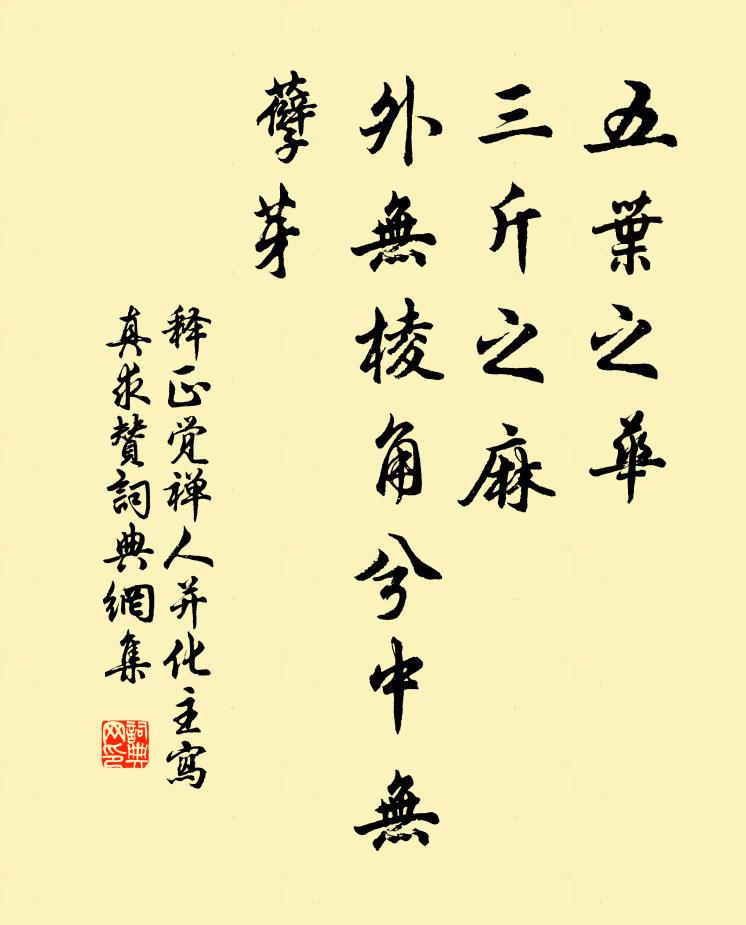 五葉之華
三斤之麻
外無棱角兮中無
孽芽
释正觉禅人并化主寫
真求赞詞典網集
詞典網印